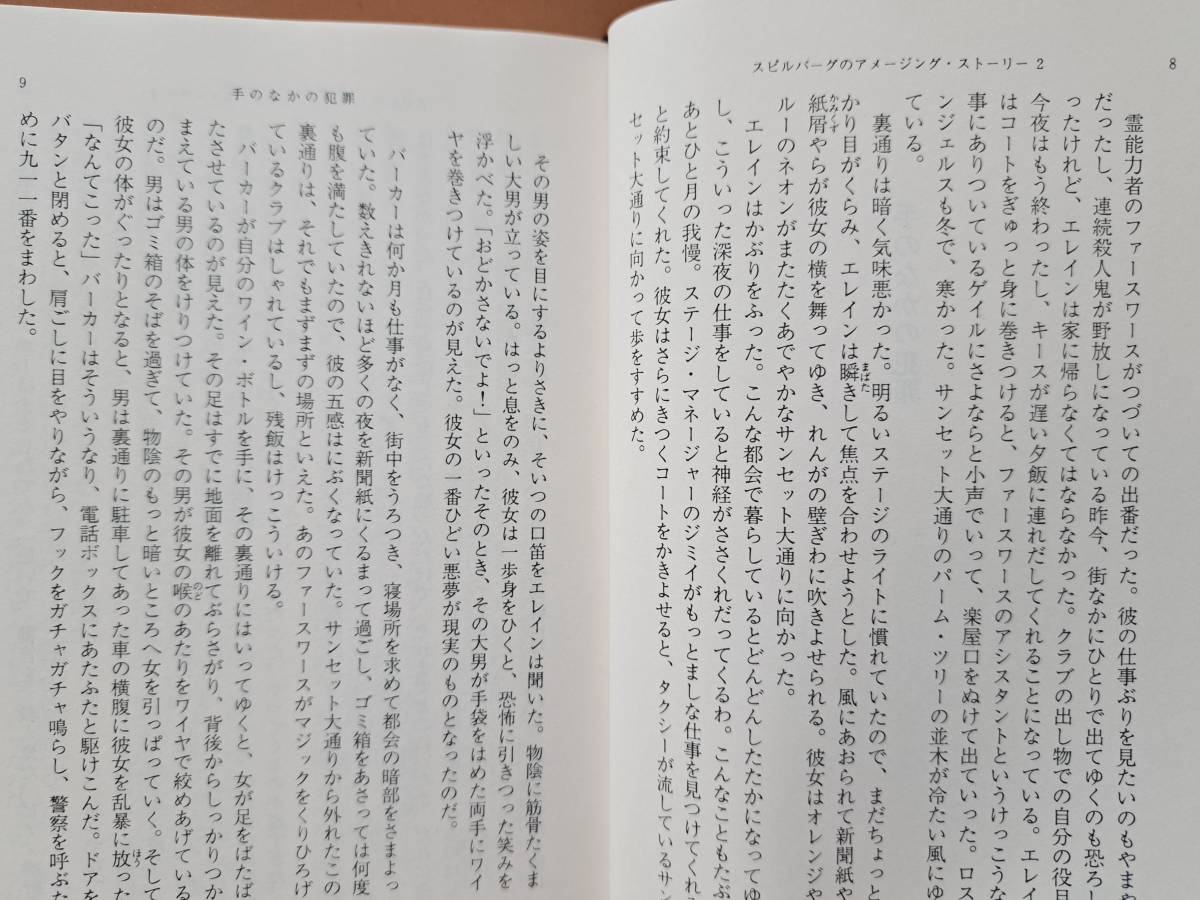 8
スピルバーグのアメージング・ストーリー2
霊能力者のファースワースがつづいての出番だった。彼の仕事ぶりを見たいのもやまや
だったし、連続殺人鬼が野放しになっている昨今、街なかにひとりで出てゆくのも恐ろし
ったけれど、エレインは家に帰らなくてはならなかった。クラブの出し物での自分の役目
今夜はもう終わったし、キースが遅い夕飯に連れだしてくれることになっている。エレイ
はコートをぎゅっと身に巻きつけると、ファースワースのアシスタントというけっこうな
事にありついているゲイルにさよならと小声でいって、楽屋口をぬけて出ていった。ロス
ンジェルスも冬で、寒かった。サンセット大通りのパーム・ツリーの並木が冷たい風にゆ
ている。
裏通りは暗く気味悪かった。明るいステージのライトに慣れていたので、まだちょっと
かり目がくらみ、エレインは瞬きして焦点を合わせようとした。風にあおられて新聞紙や
まばた
紙屑やらが彼女の横を舞ってゆき、れんがの壁ぎわに吹きよせられる。彼女はオレンジや
かみくず
ルーのネオンがまたたくあでやかなサンセット大通りに向かった。
エレインはかぶりをふった。こんな都会で暮らしているとどんどんしたたかになってゆ
し、こういった深夜の仕事をしていると神経がささくれだってくるわ。こんなこともたぶ
あとひと月の我慢。ステージ・マネージャーのジミイがもっとましな仕事を見つけてくれ
と約束してくれた。彼女はさらにきつくコートをかきよせると、タクシーが流しているサ
セット大通りに向かって歩をすすめた。
9
手のなかの犯罪
その男の姿を目にするよりさきに、そいつの口笛をエレインは聞いた。物陰に筋骨たくま
しい大男が立っている。はっと息をのみ、彼女は一歩身をひくと、恐怖に引きつった笑みを
浮かべた。「おどかさないでよ!」といったそのとき、その大男が手袋をはめた両手にワイ
ヤを巻きつけているのが見えた。彼女の一番ひどい悪夢が現実のものとなったのだ。
バーカーは何か月も仕事がなく、街中をうろつき、寝場所を求めて都会の暗部をさまよっ
ていた。数えきれないほど多くの夜を新聞紙にくるまって過ごし、ゴミ箱をあさっては何度
も腹を満たしていたので、彼の五感はにぶくなっていた。サンセット大通りから外れたこの
裏通りは、それでもまずまずの場所といえた。あのファースワースがマジックをくりひろげ
ているクラブはしゃれているし、残飯はけっこういける。
バーカーが自分のワイン・ボトルを手に、その裏通りにはいってゆくと、女が足をばたば
たさせているのが見えた。その足はすでに地面を離れてぶらさがり、背後からしっかりつか
まえている男の体をけりつけていた。その男が彼女の喉のあたりをワイヤで絞めあげている
のど
のだ。男はゴミ箱のそばを過ぎて、物陰のもっと暗いところへ女を引っぱっていく。そして
彼女の体がぐったりとなると、男は裏通りに駐車してあった車の横腹に彼女を乱暴に放った
ほう
「なんてこった」バーカーはそういうなり、電話ボックスにあたふたと駆けこんだ。ドアを
バタンと閉めると、肩ごしに目をやりながら、フックをガチャガチャ鳴らし、警察を呼ぶた
めに九一一番をまわした。